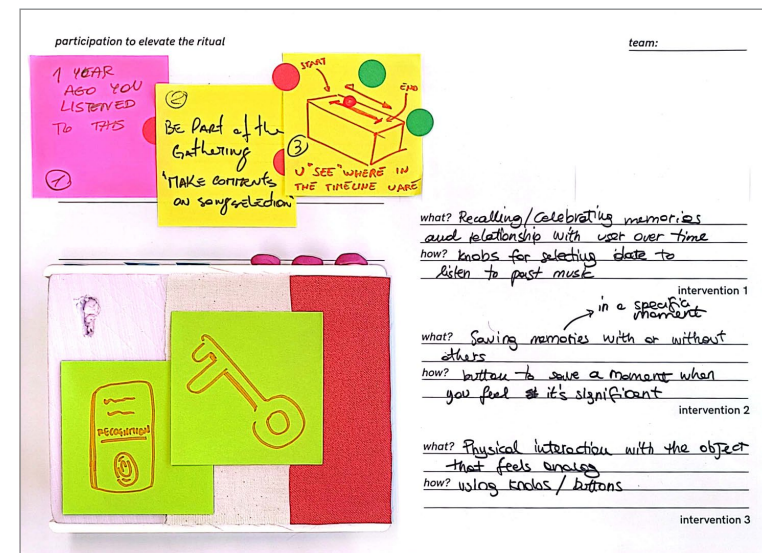 participation to elevate the ritual
team:
1 YEAR
AGO YOU
LISTENED
TO THIS
1
2
BE PART of the
Gathering
"MAKE COMMENTS
ON SONG SELECTION"
START
END
3
U "SEE" WHERE IN
THE TIMELINE U ARE
RECOGNITION
what? Recalling/Celebrating memories
and relationship with user over time
how? knobs for selecting date to
listen to past music
intervention 1
in a specific
moment
what? Saving memories with or without
others
how? button to save a moment when
you feel it's significant
intervention 2
what? Physical interaction with the object
that feels analog
how? using knobs / buttons
intervention 3